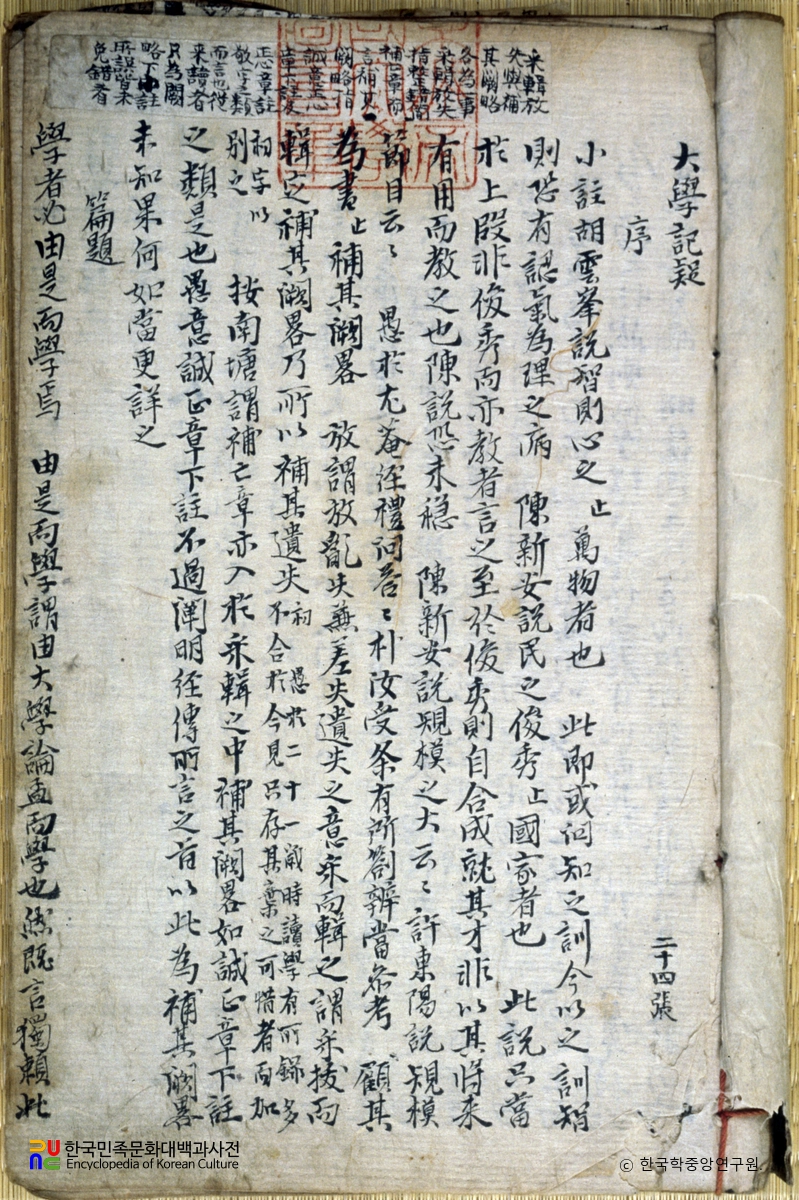 采輯放
失與補
其闕略
各為一事
采輯放失
指整錯簡
補亡章而
言補其
闕略指
章下註
敬字之類
而言也從
来讀者
只為闕
略下小註
所誤皆未
免錯者
大學記疑 二十四張
序
小註胡雲峯說智則心之止萬物者也 此即或問知之訓今以之訓智
則恐有認氣為理之病 陳新安說民之俊秀止國家者也 此說只當
於上段非俊秀而亦教者言之至於俊秀則自合成就其才非以其將来
有用而教之也陳說恐未穩 陳新安說規模之大云〻許東陽說規模
節目云〻 愚於尤菴經禮問答〻朴汝受条有所箚辨當叅考 顧其
為書止補其闕畧 放謂放亂失兼差失遺失之意采而輯之謂采掇而
輯之補其闕畧乃所以補其遺失 初愚於二十一歲時讀學有所錄多
不合於今見只存其棄之可惜者而加
初字以
別之 按南塘謂補亡章亦入於采輯之中補其闕畧如誠正章下註
之類是也愚意誠正章下註不過闡明経傳所言之旨以此為補其闕畧
未知果何如當更詳之
篇題
學者必由是而學焉 由是而學謂由大學論孟而學也然旣言獨賴此
한국민족문화대백과사전
Encyclopedia of Korean Culture
© 한국학중앙연구원